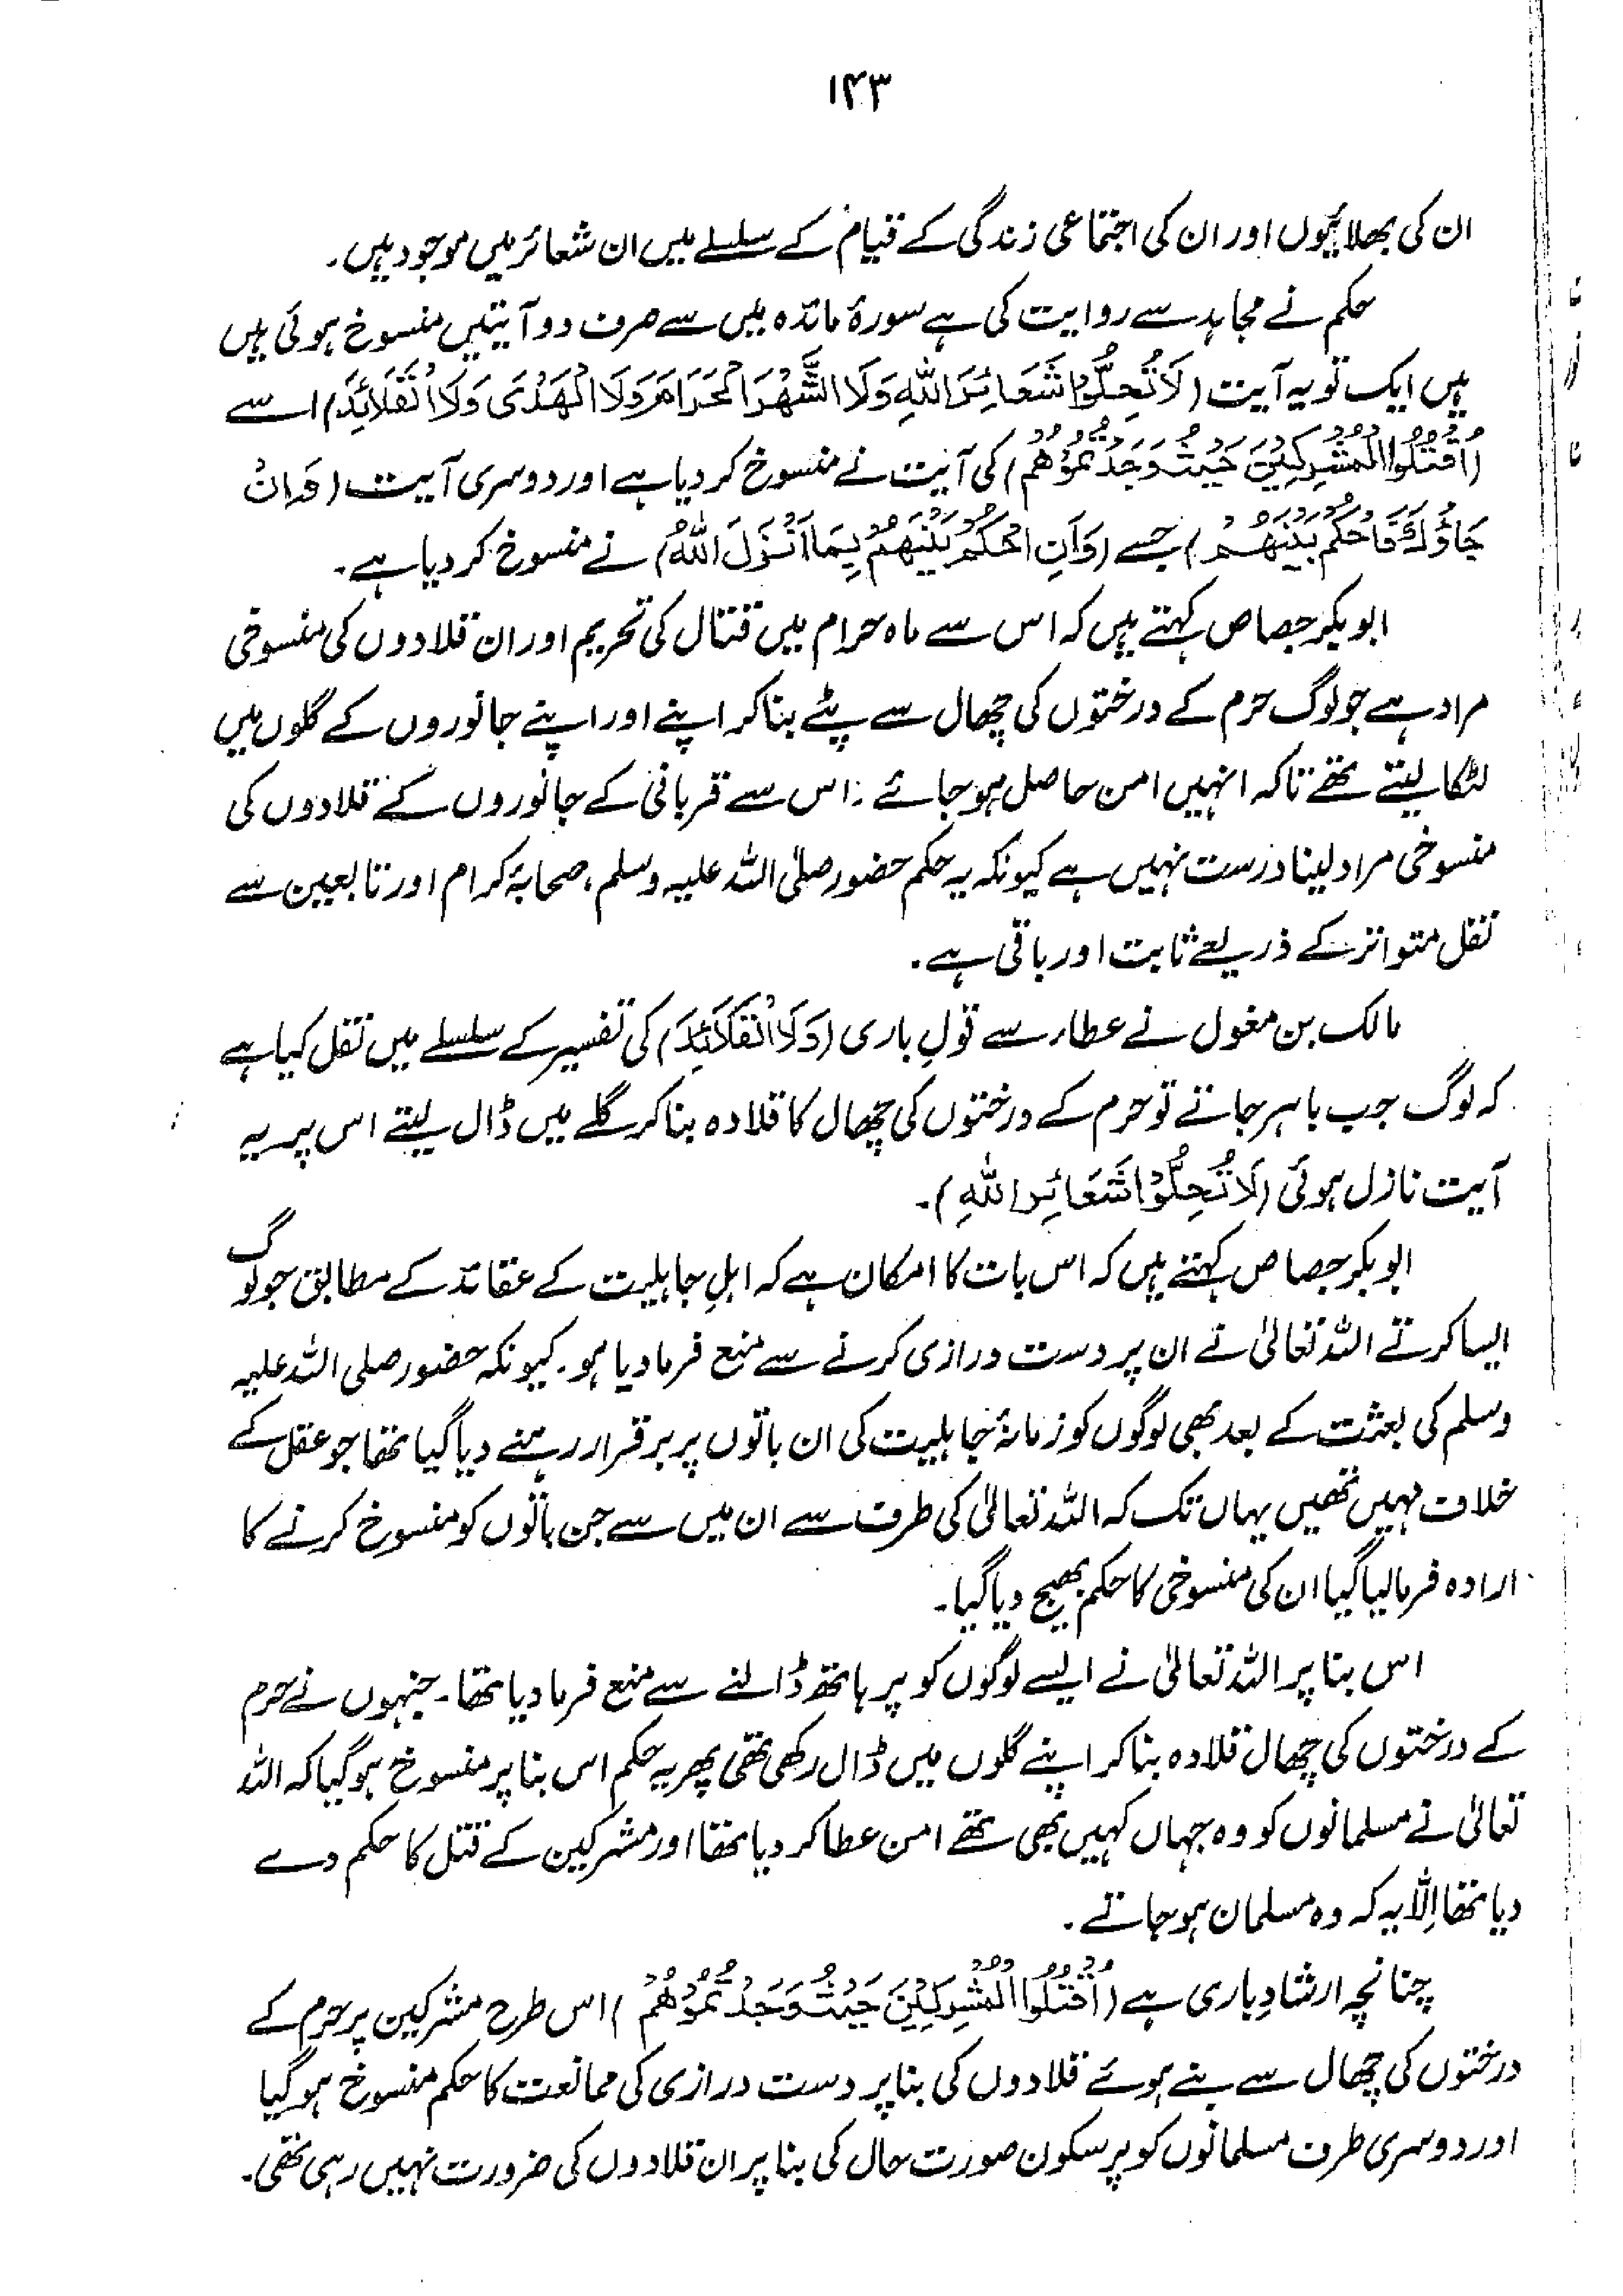 ۱۴۳
ان کی بھلائیوں اور ان کی اجتماعی زندگی کے قیام کے سلسلے میں ان شعائر میں موجود ہیں۔
حکم نے مجاہد سے روایت کی ہے سورۂ مائدہ میں سے صرف دو آیتیں منسوخ ہوئی ہیں
ہیں ایک تو یہ آیت (لَا تُحِلُّوْا شَعَائِرَ اللّٰهِ وَلَا الشَّهْرَ الْحَرَامَ وَلَا الْهَدْىَ وَلَا الْقَلَائِدَ) اسے
(اُقْتُلُوا الْمُشْرِكِيْنَ حَيْثُ وَجَدْتُّمُوْهُمْ) کی آیت نے منسوخ کر دیا ہے اور دوسری آیت (فَاِنْ
جَاؤُكَ فَاحْكُمْ بَيْنَهُمْ) جسے (وَاَنِ احْكُمْ بَيْنَهُمْ بِمَا اَنْزَلَ اللّٰهُ) نے منسوخ کر دیا ہے۔
ابوبکر جصاص کہتے ہیں کہ اس سے ماہ حرام میں قتال کی تحریم اور ان قلادوں کی منسوخی
مراد ہے جو لوگ حرم کے درختوں کی چھال سے پٹے بنا کر اپنے اور اپنے جانوروں کے گلوں میں
لٹکا لیتے تھے تاکہ انہیں امن حاصل ہو جائے۔ اس سے قربانی کے جانوروں کے قلادوں کی
منسوخی مراد لینا درست نہیں ہے کیونکہ یہ حکم حضور صلی اللہ علیہ وسلم، صحابۂ کرام اور تابعین سے
نقل متواتر کے ذریعے ثابت اور باقی ہے۔
مالک بن مغول نے عطاء سے قولِ باری (وَلَا الْقَلَائِدَ) کی تفسیر کے سلسلے میں نقل کیا ہے
کہ لوگ جب باہر جاتے تو حرم کے درختوں کی چھال کا قلادہ بنا کر گلے میں ڈال لیتے اس پر یہ
آیت نازل ہوئی (لَا تُحِلُّوْا شَعَائِرَ اللّٰهِ)۔
ابوبکر جصاص کہتے ہیں کہ اس بات کا امکان ہے کہ اہلِ جاہلیت کے عقائد کے مطابق جو لوگ
ایسا کرتے اللہ تعالیٰ نے ان پر دست درازی کرنے سے منع فرما دیا ہو۔ کیونکہ حضور صلی اللہ علیہ
وسلم کی بعثت کے بعد بھی لوگوں کو زمانۂ جاہلیت کی ان باتوں پر برقرار رہنے دیا گیا تھا جو عقل کے
خلاف نہیں تھیں یہاں تک کہ اللہ تعالیٰ کی طرف سے ان میں سے جن باتوں کو منسوخ کرنے کا
ارادہ فرما لیا گیا ان کی منسوخی کا حکم بھیج دیا گیا۔
اس بنا پر اللہ تعالیٰ نے ایسے لوگوں کو پر ہاتھ ڈالنے سے منع فرما دیا تھا۔ جنہوں نے حرم
کے درختوں کی چھال قلادہ بنا کر اپنے گلوں میں ڈال رکھی تھی پھر یہ حکم اس بنا پر منسوخ ہو گیا کہ اللہ
تعالیٰ نے مسلمانوں کو وہ جہاں کہیں بھی تھے امن عطا کر دیا تھا اور مشرکین کے قتل کا حکم دے
دیا تھا اِلّا یہ کہ وہ مسلمان ہو جاتے۔
چنانچہ ارشادِ باری ہے (اُقْتُلُوا الْمُشْرِكِيْنَ حَيْثُ وَجَدْتُّمُوْهُمْ) اس طرح مشرکین پر حرم کے
درختوں کی چھال سے بنے ہوئے قلادوں کی بنا پر دست درازی کی ممانعت کا حکم منسوخ ہو گیا
اور دوسری طرف مسلمانوں کو پرسکون صورت حال کی بنا پر ان قلادوں کی ضرورت نہیں رہی تھی۔